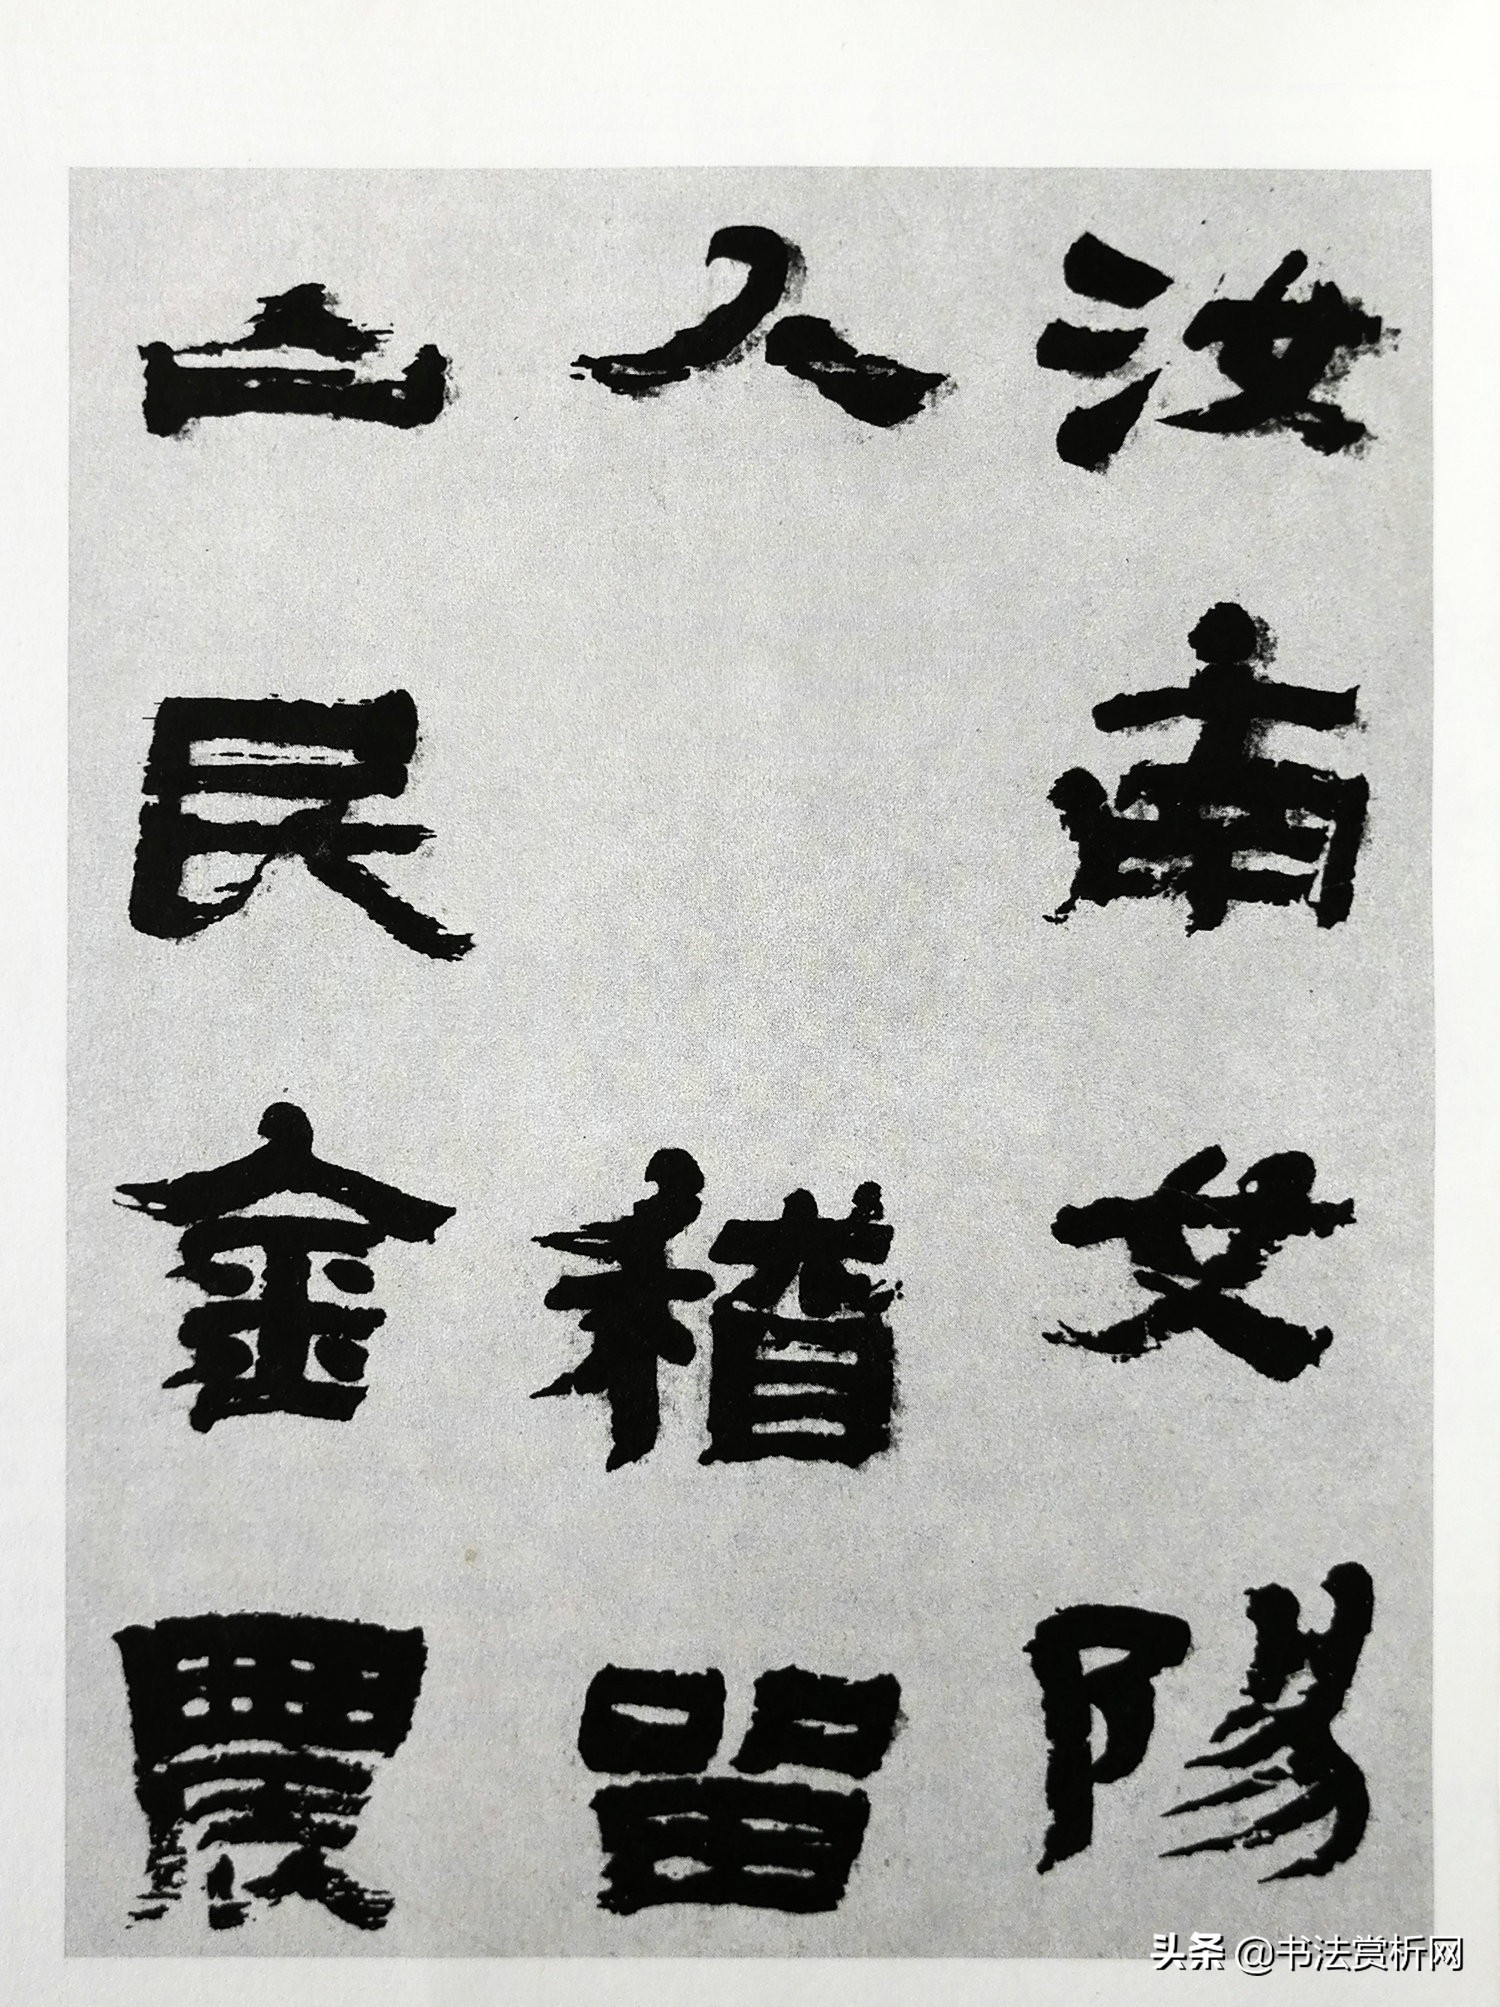 汝南女陽
人 稽留
山民金農
头条 @书法赏析网